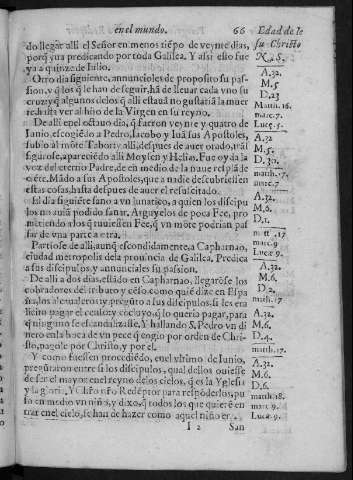 en el mundo. 66 Edad de Ie
do llegar alli el Señor en menos tiẽpo de veynte dias,
porq̃ yua predicando por toda Galilea. Y assi esto fue
ya a quinze de Iulio.
Otro dia siguiente, annuncioles de proposito su pas-
sion, y q̃ los q̃ le han de seguir, hã de lleuar cada vno su
cruz, y q̃ algunos delos q̃ alli estauã no gustariã la muer
hasta ver al hijo de la Virgen en su reyno.
De alli en el octauo dia, q̃ fueron veynte y quatro de
Iunio, escogiẽdo a Pedro, Iacobo y Iuã sus Apostoles,
subio al mõte Tabor, y alli, despues de auer orado, trãs
figurose, apareciẽdo alli Moysen y Helias. Fue oyda la
voz del eterno Padre, de en medio de la nuue resplãde
ciẽte. Mãdo a sus Apostoles, que a nadie descubriessen
estas cosas, hasta despues de auer el resuscitado.
El dia siguiẽte sano a vn lunatico, a quien los discipu
los no auiã podido sanar. Arguyelos de poca Fee, pro
metiendo a los q̃ tuuiessen Fee, q̃ vn mõte podrian pas
sar de vna parte a otra.
Partiose de alli, aunq̃ escondidamente, a Capharnao,
ciudad metropolis dela prouincia de Galilea. Predica
a sus discipulos, y annunciales su passion.
De alli a dos dias, estãdo en Capharnao, llegarõse los
cobradores del tributo y cẽso como quiẽ dize en Espa
ña, los alcaualeros y pregũto a sus discipulos, si les era
licito pagar el censo y concluyo, q̃ lo queria pagar, para
q̃ ninguno se escandalizasse. Y hallando S. Pedro vn di
nero en la boca de vn pece q̃ cogio por orden de Chri-
sto, pagole por Christo, y por el.
Y como fuessen procediẽdo, en el vltimo de Iunio,
pregũtaron entre si los discipulos, qual dellos ouiesse
de ser el mayor en el reyno de los cielos, q̃ es la Yglesia
y la gloria. Y Christo nro Redẽptor para respõderlos, pu
so en medio vn niño, y dixo, q̃ todos los que quierẽ en
trar en el cielo, se han de hazer como aquel niño.
I 2 San
su Christo
N. S.
A.32.
M.5.
D.23
Matth.16.
marc.7.
Luc.9.
A.32
M.5.
D.30.
matth.17.
marc.7
A.32.
M.6.
D.1.
matt.17
marc.9
Luc.9.
A.32.
M.6.
D.2.
math.17
A.32.
M.6.
D.4.
matth.17.
A.32.
M.6.
D.6.
matth.18.
marc.9.
Luc.9.